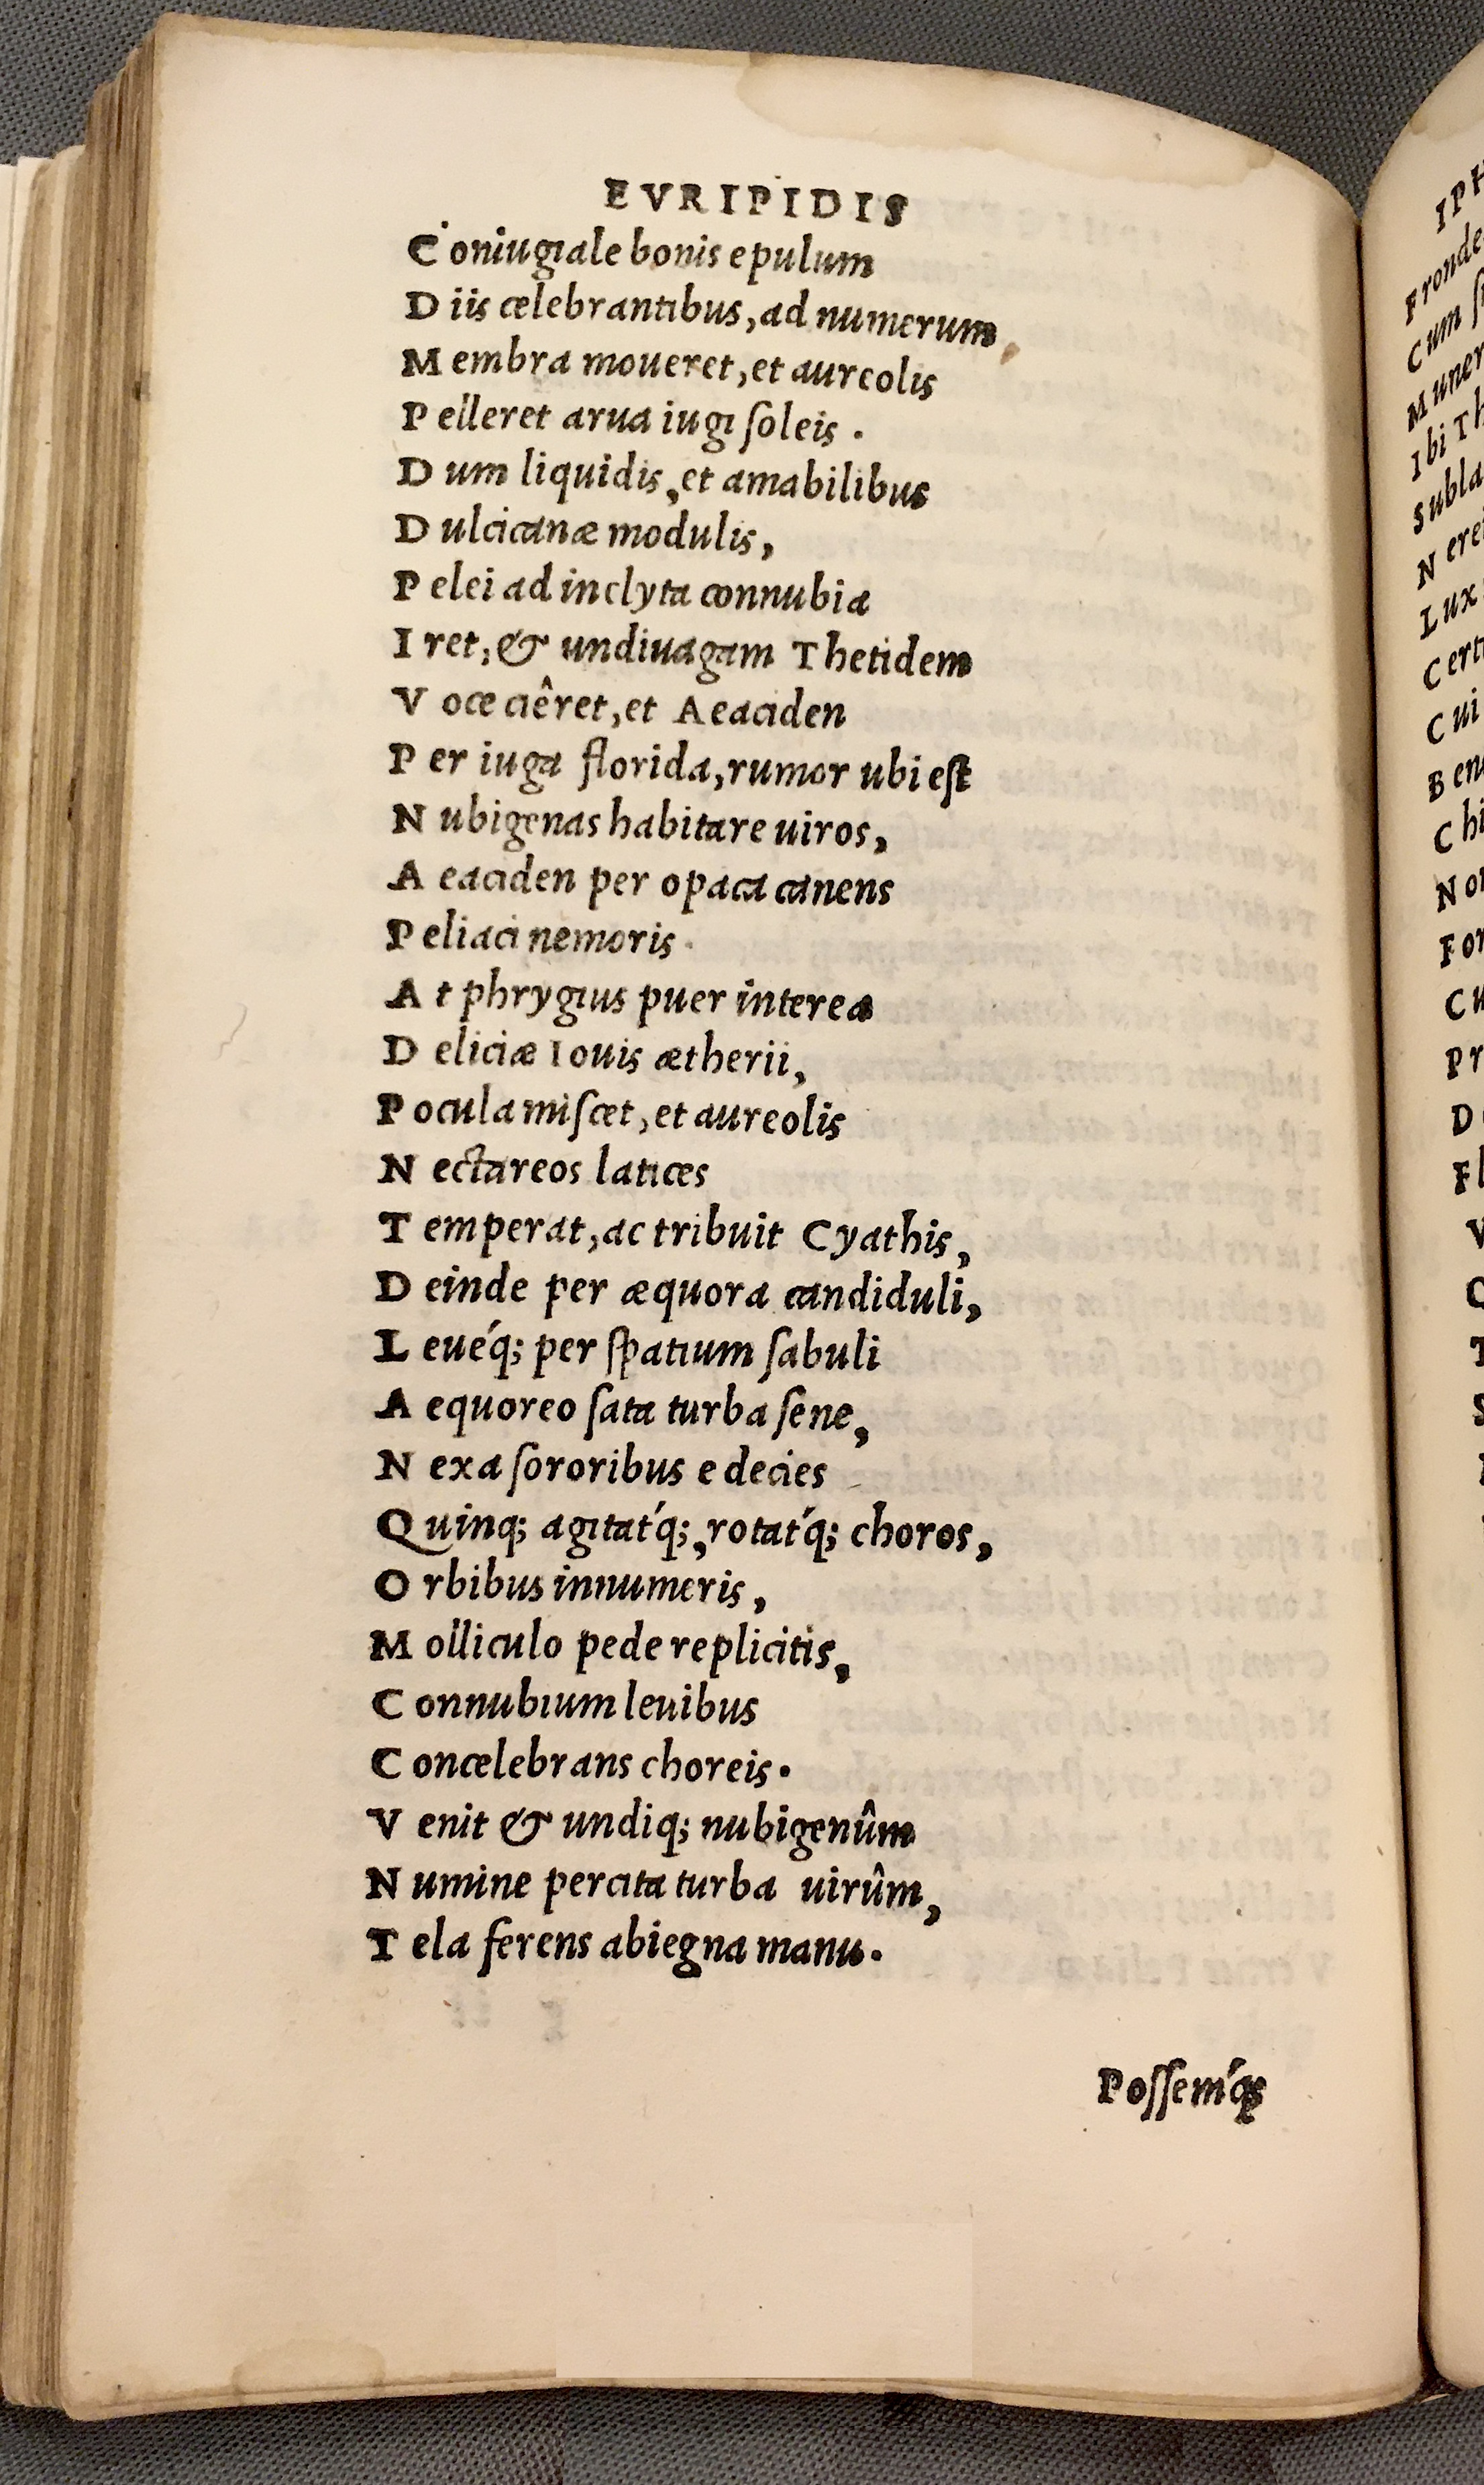 EVRIPIDIS
Coniugiale bonis epulum
Diis celebrantibus, ad numerum
Membra moueret, et aureolis
Pelleret arua iugi ſoleis .
Dum liquidis, et amabilibus
Dulcicanæ modulis,
Pelei ad inclyta connubia
Iret, & undiuagam Thetidem
Voce ciêret, et Aeaciden
Per iuga florida, rumor ubi eſt
Nubigenas habitare uiros,
Aeaciden per opaca canens
Peliaci nemoris.
At phrygius puer interea
Deliciæ Iouis ætherii,
Pocula miſcet, et aureolis
Nectareos latices
Temperat, ac tribuit Cyathis,
Deinde per æquora candiduli,
Leué́q; per ſpatium ſabuli
Aequoreo ſata turba ſene,
Nexa ſororibus e decies
Quinq; agitat́q;, rotat́q; choros,
Orbibus innumeris,
Molliculo pede replicitis,
Connubium leuibus
Concelebrans choreis.
Venit & undiq; nubigenûm
Numine percita turba uirûm,
Tela ferens abiegna manu.
Poſſeḿq;
IPH
Fronde
Cum
Muner
Ibi Th
Subla
Nerei
Lux
Cert
Cui
Ben
Chi
No
For
Cu
Pr
D
Fl
V
C
T
S